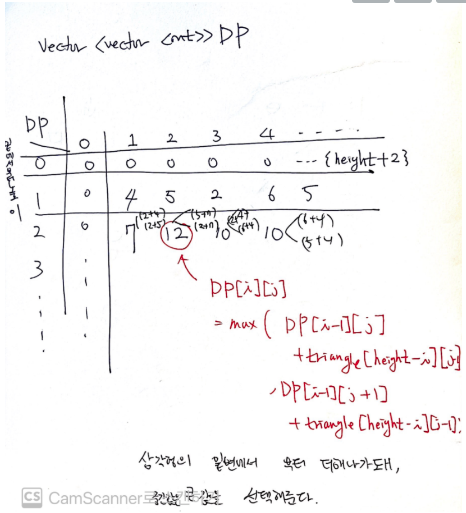 Vector <vector <int>> DP
DP 0 1 2 3 4 - - - -
0 0 0 0 0 0 --- {height+2}
1 0 4 5 2 6 5
2 0 7 (2+4) (2+5) 12 (5+7) (2+7) 10 (6+4) 10 (6+4) (5+4)
3
DP[i][j]
= max ( DP[i-1][j]
+ triangle[height-i][j-1]
, DP[i-1][j+1]
+ triangle[height-i][j-1];
삼각형의 밑변에서 부터 더해나가되,
큰 값을 선택해준다.
CS CamScanner로